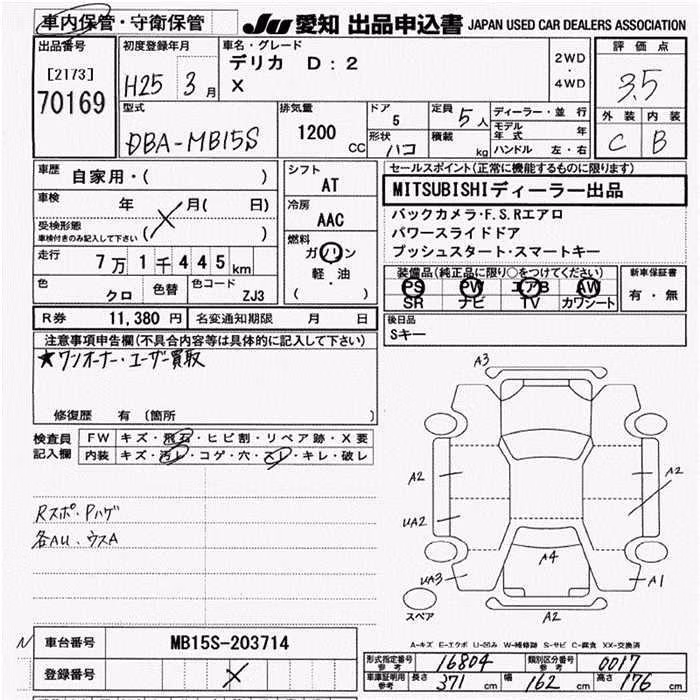 車内保管・守衛保管
JU 愛知 出品申込書 JAPAN USED CAR DEALERS ASSOCIATION
出品番号
[2173]
70169
初度登録年月
H25 3 月
車名・グレード
デリカ D:2
X
2WD
・
4WD
評価点
3.5
外装 内装
C B
型式
DBA-MB15S
排気量
1200 CC
ドア
5
形状
ハコ
定員
5 人
積載
kg
ディーラー・並行
モデル年式 年
ハンドル 左・右
車歴
自家用・( )
車検
年 月( 日)
受検形態
車検付きのみ記入して下さい ( )
走行
7万1千445km
色
クロ
色替
色コード
ZJ3
シフト
AT
冷房
AAC
燃料
ガソリン
軽・油
( )
セールスポイント(正常に機能するものに限ります)
MITSUBISHIディーラー出品
バックカメラ・F.S.Rエアロ
パワースライドドア
プッシュスタート・スマートキー
装備品(純正品に限り○をつけてください)
PS PW エアB AW
SR ナビ TV カワシート
新車保証書
有・無
R券 11,380 円 名変通知期限 月 日
後日品
Sキー
注意事項申告欄(不具合内容等は具体的に記入して下さい)
★ワンオーナー・ユーザー買取
修復歴 有 〔箇所 〕
検査員
記入欄
FW キズ・飛石・ヒビ割・リペア跡・X要
内装 キズ・汚レ・コゲ・穴・スレ・キレ・破レ
Rスポ・Pハゲ
各AU、ウスA
A3
A2
A2
UA2
A4
UA3
A1
A2
スペア
N 車台番号 MB15S-203714
登録番号
A-キズ E-エクボ U-凹み W-補修跡 S-サビ C-腐食 XX-交換済
形式指定番号 参考 16804 類別区分番号 参考 0017
車庫証明用 参考 長さ 371 cm 幅 162 cm 高さ 176 cm